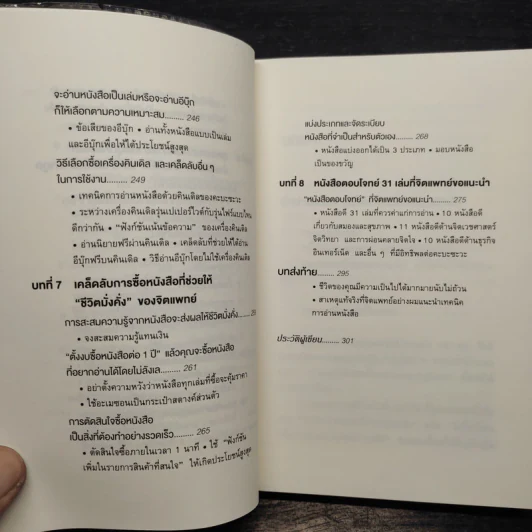 จะอ่านหนังสือเป็นเล่มหรือจะอ่านอีบุ๊ก
ก็ให้เลือกตามความเหมาะสม......... 246
• ข้อเสียของอีบุ๊ก • อ่านทั้งหนังสือแบบเป็นเล่ม
และอีบุ๊กเพื่อให้ได้ประโยชน์สูงสุด
วิธีเลือกซื้อเครื่องคินเดิล และเคล็ดลับอื่น ๆ
ในการใช้งาน......... 249
• เทคนิคการอ่านหนังสือด้วยคินเดิลของคะบะซะวะ
• ระหว่างเครื่องคินเดิลรุ่นเปเปอร์ไวต์กับรุ่นไฟร์แบบไหน
ดีกว่ากัน • "ฟังก์ชันเน้นข้อความ" ของเครื่องคินเดิล
• อ่านนิยายฟรีผ่านคินเดิล • เคล็ดลับที่ช่วยให้ได้อ่าน
อีบุ๊กฟรีบนคินเดิล • วิธีอ่านอีบุ๊กโดยไม่ใช้เครื่องคินเดิล
บทที่ 7 เคล็ดลับการซื้อหนังสือที่ช่วยให้
"ชีวิตมั่งคั่ง" ของจิตแพทย์
การสะสมความรู้จากหนังสือจะส่งผลให้ชีวิตมั่งคั่ง.........
• จงสะสมความรู้แทนเงิน
"ตั้งงบซื้อหนังสือต่อ 1 ปี" แล้วคุณจะซื้อหนังสือ
ที่อยากอ่านได้โดยไม่ลังเล......... 261
• อย่าตั้งความหวังว่าหนังสือทุกเล่มที่ซื้อจะคุ้มราคา
• ใช้อะเมซอนเป็นกระเป๋าสตางค์ส่วนตัว
การตัดสินใจซื้อหนังสือ
เป็นสิ่งที่ต้องทำอย่างรวดเร็ว......... 265
• ตัดสินใจซื้อภายในเวลา 1 นาที • ใช้ "ฟังก์ชัน
เพิ่มในรายการสินค้าที่สนใจ" ให้เกิดประโยชน์สูงสุด
แบ่งประเภทและจัดระเบียบ
หนังสือที่จำเป็นสำหรับตัวเอง......... 268
• หนังสือแบ่งออกได้เป็น 3 ประเภท • มอบหนังสือ
เป็นของขวัญ
บทที่ 8 หนังสือตอบโจทย์ 31 เล่มที่จิตแพทย์ขอแนะนำ
"หนังสือตอบโจทย์" ที่จิตแพทย์ขอแนะนำ......... 275
• หนังสือดี 31 เล่มที่ควรค่าแก่การอ่าน • 10 หนังสือดี
เกี่ยวกับสมองและสุขภาพ • 11 หนังสือดีด้านจิตเวชศาสตร์
จิตวิทยา และการผ่อนคลายจิตใจ • 10 หนังสือดีด้านธุรกิจ
อินเทอร์เน็ต และอื่น ๆ ที่มีอิทธิพลต่อคะบะซะวะ
บทส่งท้าย......... 295
• ชีวิตของคุณมีความเป็นไปได้มากมายนับไม่ถ้วน
• สาเหตุแท้จริงที่จิตแพทย์อย่างผมแนะนำเทคนิค
การอ่านหนังสือ
ประวัติผู้เขียน......... 301